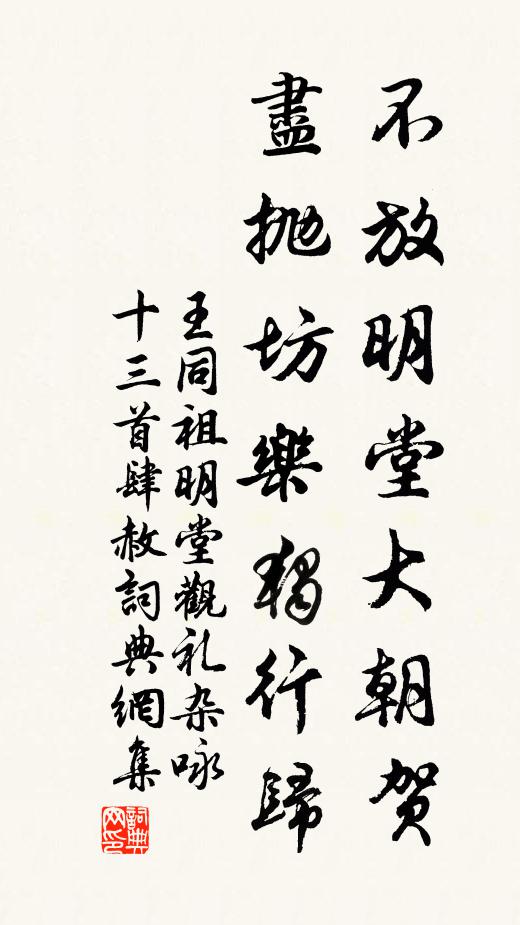 不放明堂大朝賀
盡拋坊樂獨行歸
王同祖明堂觀礼杂咏
十三首肆赦詞典網集
詞典網印